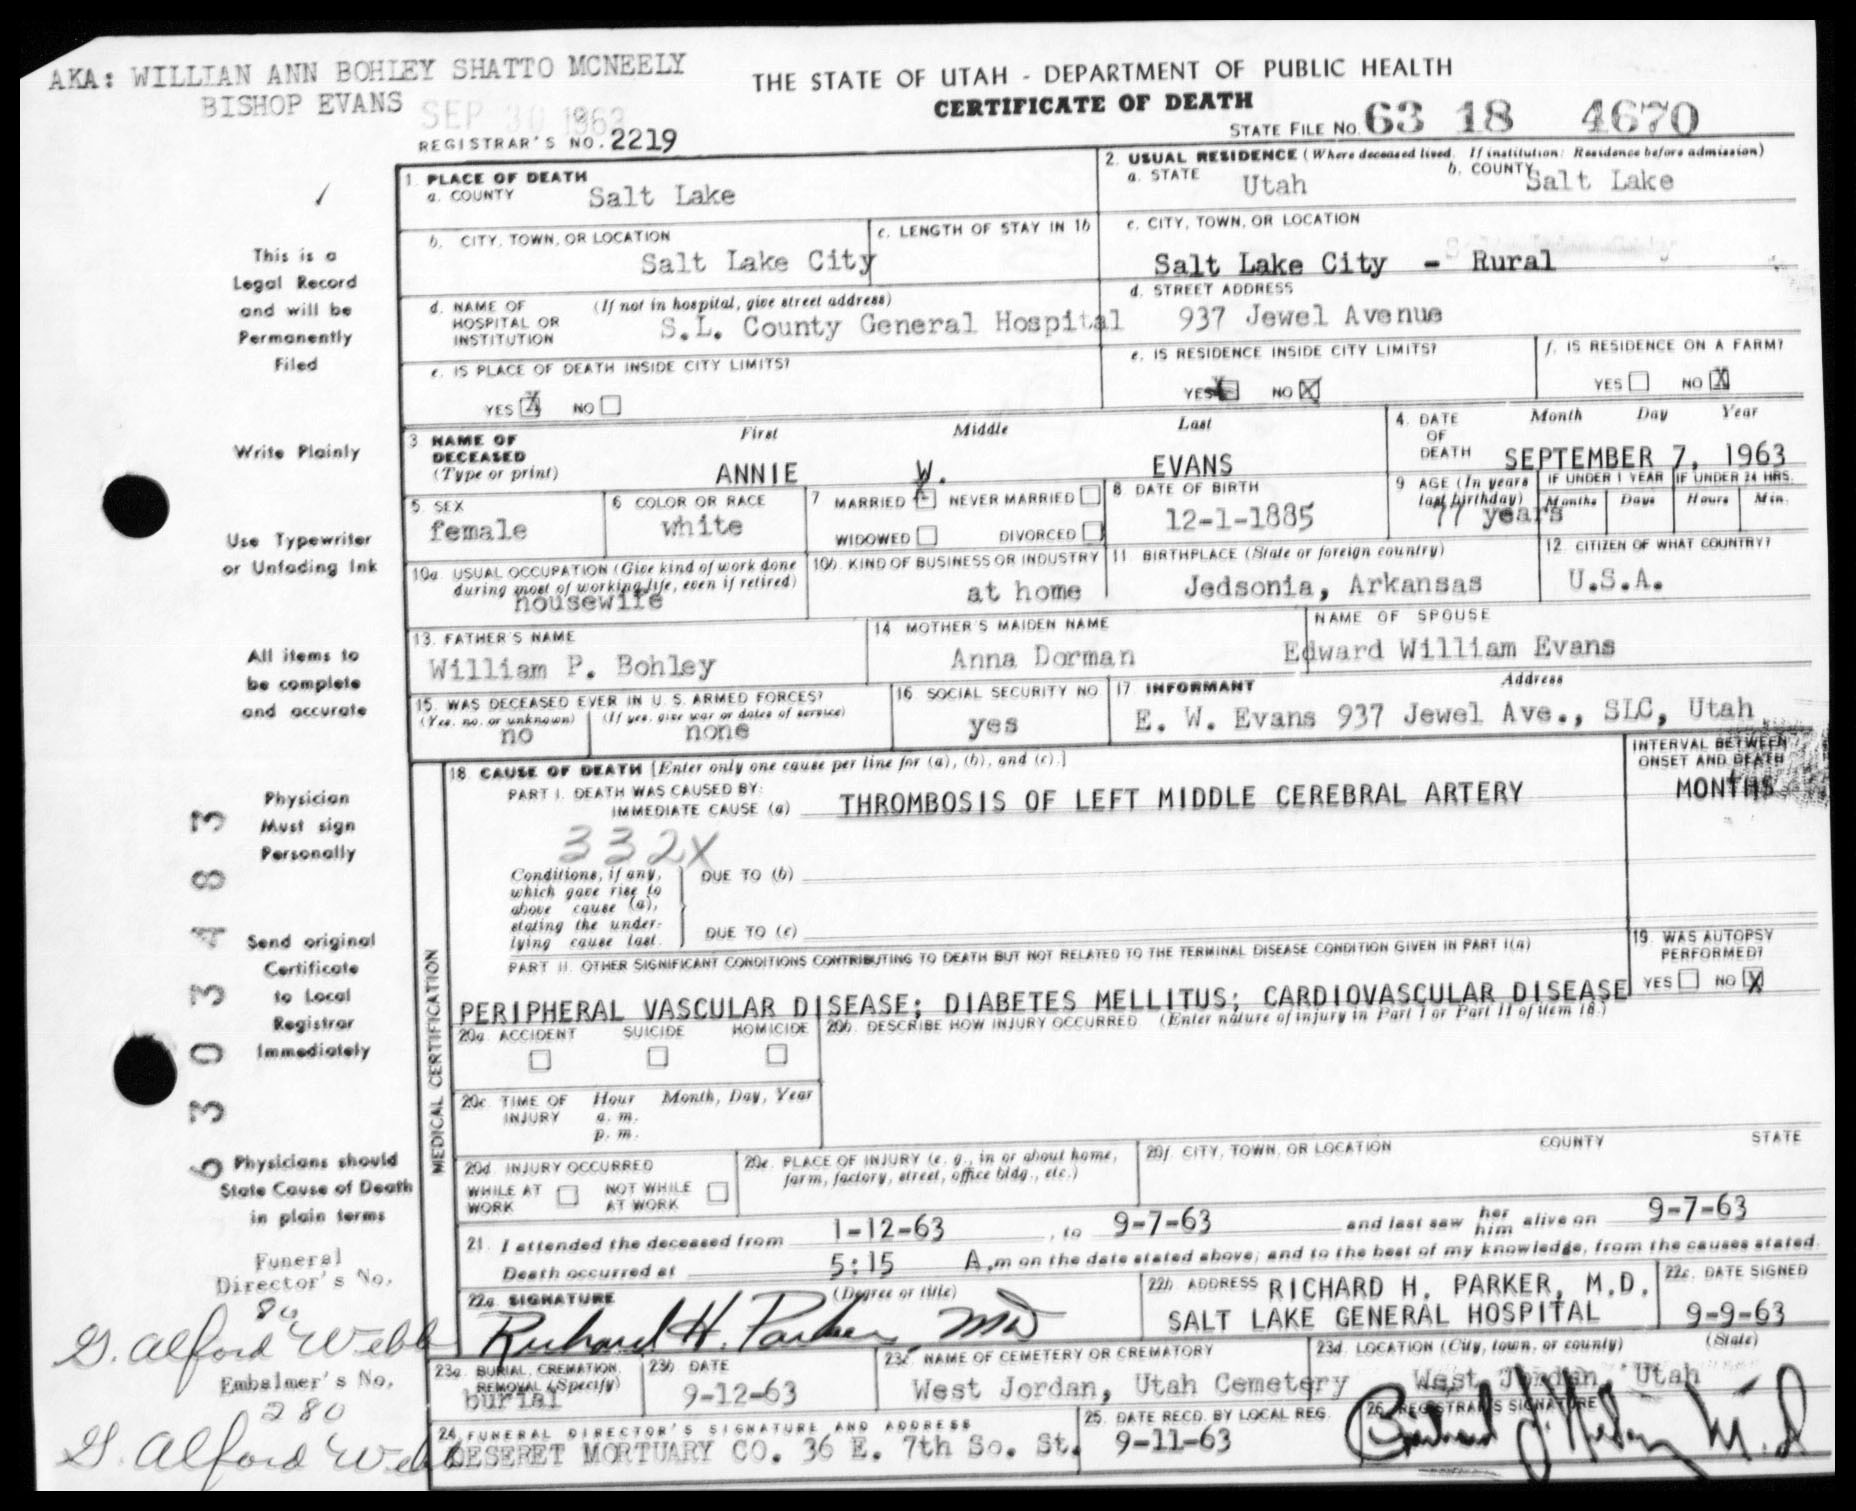 AKA: WILLIAN ANN BOHLEY SHATTO MCNEELY
BISHOP EVANS
SEP 30 1963
THE STATE OF UTAH - DEPARTMENT OF PUBLIC HEALTH
CERTIFICATE OF DEATH
STATE FILE NO. 63 18 4670
REGISTRAR'S NO. 2219
This is a
Legal Record
and will be
Permanently
Filed
Write Plainly
Use Typewriter
or Unfading Ink
All items to
be complete
and accurate
Physician
Must sign
Personally
Send original
Certificate
to Local
Registrar
Immediately
Physicians should
State Cause of Death
in plain terms
6 3 0 3 4 8 3
Funeral
Director's No.
80
G. Alford Webb
Embalmer's No.
280
G. Alford Webb
1. PLACE OF DEATH
a. COUNTY Salt Lake
2. USUAL RESIDENCE (Where deceased lived. If institution: Residence before admission)
a. STATE Utah b. COUNTY Salt Lake
b. CITY, TOWN, OR LOCATION Salt Lake City
c. LENGTH OF STAY IN 1b
c. CITY, TOWN, OR LOCATION
Salt Lake City - Rural
d. NAME OF HOSPITAL OR INSTITUTION (If not in hospital, give street address)
S.L. County General Hospital
d. STREET ADDRESS
937 Jewel Avenue
e. IS PLACE OF DEATH INSIDE CITY LIMITS?
YES X NO
e. IS RESIDENCE INSIDE CITY LIMITS?
YES NO X
f. IS RESIDENCE ON A FARM?
YES NO X
3 NAME OF DECEASED (Type or print)
First Middle Last
ANNIE W. EVANS
4. DATE OF DEATH Month Day Year
SEPTEMBER 7, 1963
5. SEX
female
6 COLOR OR RACE
white
7 MARRIED NEVER MARRIED
WIDOWED DIVORCED
8 DATE OF BIRTH
12-1-1885
9 AGE (In years last birthday)
77 years
IF UNDER 1 YEAR Months Days
IF UNDER 24 HRS. Hours Min.
10a. USUAL OCCUPATION (Give kind of work done during most of working life, even if retired)
housewife
10b. KIND OF BUSINESS OR INDUSTRY
at home
11 BIRTHPLACE (State or foreign country)
Jedsonia, Arkansas
12. CITIZEN OF WHAT COUNTRY?
U.S.A.
13. FATHER'S NAME
William P. Bohley
14 MOTHER'S MAIDEN NAME
Anna Dorman
NAME OF SPOUSE
Edward William Evans
15. WAS DECEASED EVER IN U.S. ARMED FORCES?
(Yes, no, or unknown) (If yes, give war or dates of service)
no none
16 SOCIAL SECURITY NO
yes
17 INFORMANT Address
E. W. Evans 937 Jewel Ave., SLC, Utah
MEDICAL CERTIFICATION
18 CAUSE OF DEATH [Enter only one cause per line for (a), (b), and (c).]
INTERVAL BETWEEN ONSET AND DEATH
PART I. DEATH WAS CAUSED BY:
IMMEDIATE CAUSE (a) THROMBOSIS OF LEFT MIDDLE CEREBRAL ARTERY MONTHS
332X
Conditions, if any, which gave rise to above cause (a), stating the underlying cause last.
DUE TO (b)
DUE TO (c)
PART II. OTHER SIGNIFICANT CONDITIONS CONTRIBUTING TO DEATH BUT NOT RELATED TO THE TERMINAL DISEASE CONDITION GIVEN IN PART I(a)
PERIPHERAL VASCULAR DISEASE; DIABETES MELLITUS; CARDIOVASCULAR DISEASE
19. WAS AUTOPSY PERFORMED?
YES NO X
20a. ACCIDENT SUICIDE HOMICIDE
20b. DESCRIBE HOW INJURY OCCURRED (Enter nature of injury in Part I or Part II of item 18.)
20c. TIME OF INJURY Hour Month, Day, Year
a. m.
p. m.
20d. INJURY OCCURRED
WHILE AT WORK NOT WHILE AT WORK
20e. PLACE OF INJURY (e. g., in or about home, farm, factory, street, office bldg., etc.)
20f. CITY, TOWN, OR LOCATION COUNTY STATE
21. I attended the deceased from 1-12-63, to 9-7-63 and last saw her him alive on 9-7-63
Death occurred at 5:15 A.m on the date stated above; and to the best of my knowledge, from the causes stated.
22a. SIGNATURE (Degree or title)
Richard H. Parker MD
22b. ADDRESS RICHARD H. PARKER, M.D.
SALT LAKE GENERAL HOSPITAL
22c. DATE SIGNED
9-9-63
23a. BURIAL, CREMATION, REMOVAL (Specify)
burial
23b DATE
9-12-63
23c NAME OF CEMETERY OR CREMATORY
West Jordan, Utah Cemetery
23d. LOCATION (City, town, or county) (State)
West Jordan, Utah
24. FUNERAL DIRECTOR'S SIGNATURE AND ADDRESS
DESERET MORTUARY CO. 36 E. 7th So. St.
25. DATE RECD. BY LOCAL REG.
9-11-63
26. REGISTRAR'S SIGNATURE
M.D